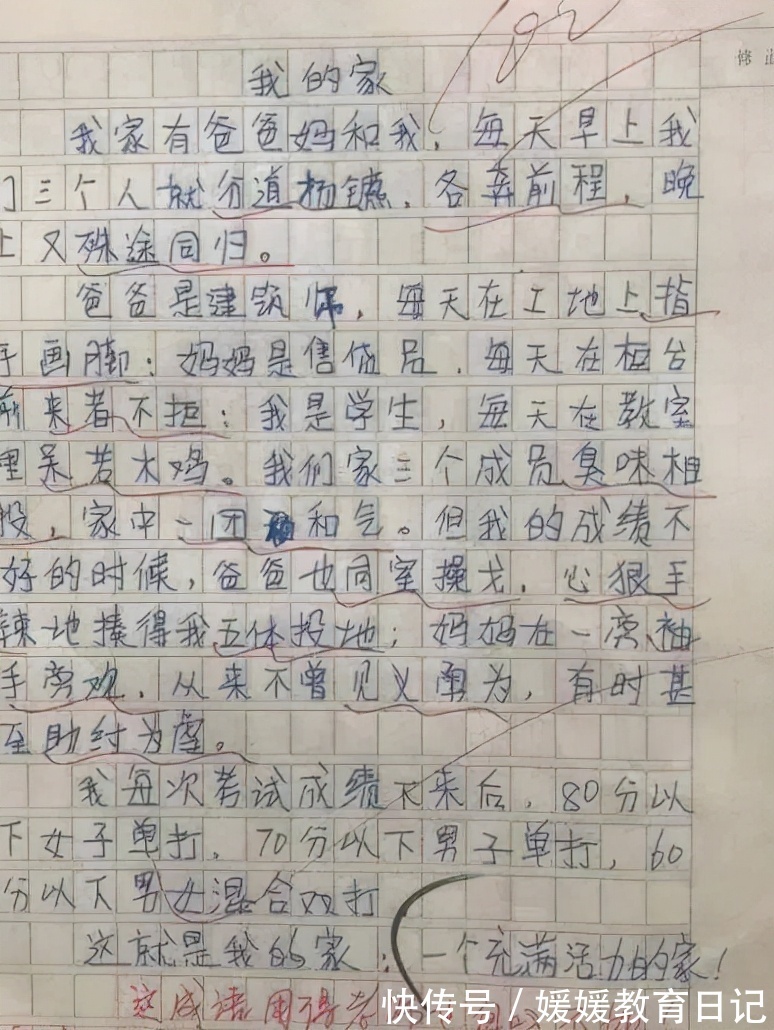 102
修
我的家
我家有爸爸妈和我，每天早上我
们三个人就分道扬镳，各奔前程，晚
上又殊途同归。
爸爸是建筑师，每天在工地上指
手画脚；妈妈是售货员，每天在柜台
前来者不拒；我是学生，每天在教室
里呆若木鸡。我们家三个成员臭味相
投，家中一团和气。但我的成绩不
好的时候，爸爸也同室操戈，心狠手
辣地揍得我五体投地；妈妈在一旁袖
手旁观，从来不曾见义勇为，有时甚
至助纣为虐。
我每次考试成绩下来后，80分以
下女子单打，70分以下男子单打，60
分以下男女混合双打
这就是我的家；一个充满活力的家！
这成语用得
快传号/媛媛教育日记